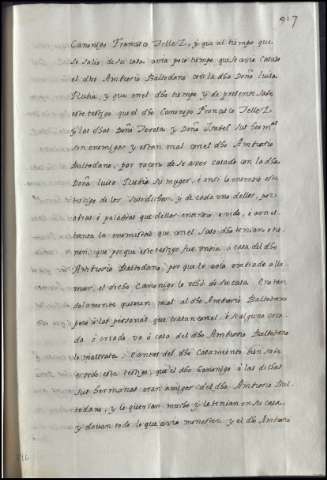 917
Canonigo Francisco Tellez, y que al tiempo que
se salio de su casa avia poco tiempo, que se avia casado
el dho Antonio Baltodano con la dha Doña Luisa
y que en el dho tiempo y de presente sabe
este testigo que el dho Canonigo Francisco Tellez
y las dhas Doña y Doña Isabel sus hermas
son enemigos y estan mal con el dho Antonio
Baltodano, por racon de se aver casado con la dha
Doña Luisa su muger, e ansi lo entendio este
testigo de los susodichos, y de cada uno dellos, por
obras i palabras que dellos entendio
la enemistad que con el suso dho tenian e tie
nen, que porque este testigo fue a casa del dho
Antonio Baltodano, por que le avia enviado a lla
mar, el dicho Canonigo le echó de su casa.
solamente quieren mal al dho Antonio Baltodano
pero á las personas que tratan con el, e si alguna cria
da ó criado va á casa del dho Antonio Baltodano
le maltrata: e antes del dho Casamiento
este testigo, que el dho Canonigo é las dichas
sus hermanas eran amigos del dho Antonio Bal
todano, y le querian mucho y le tenian en su casa,
y davan todo lo que avia menester y el dho Antonio